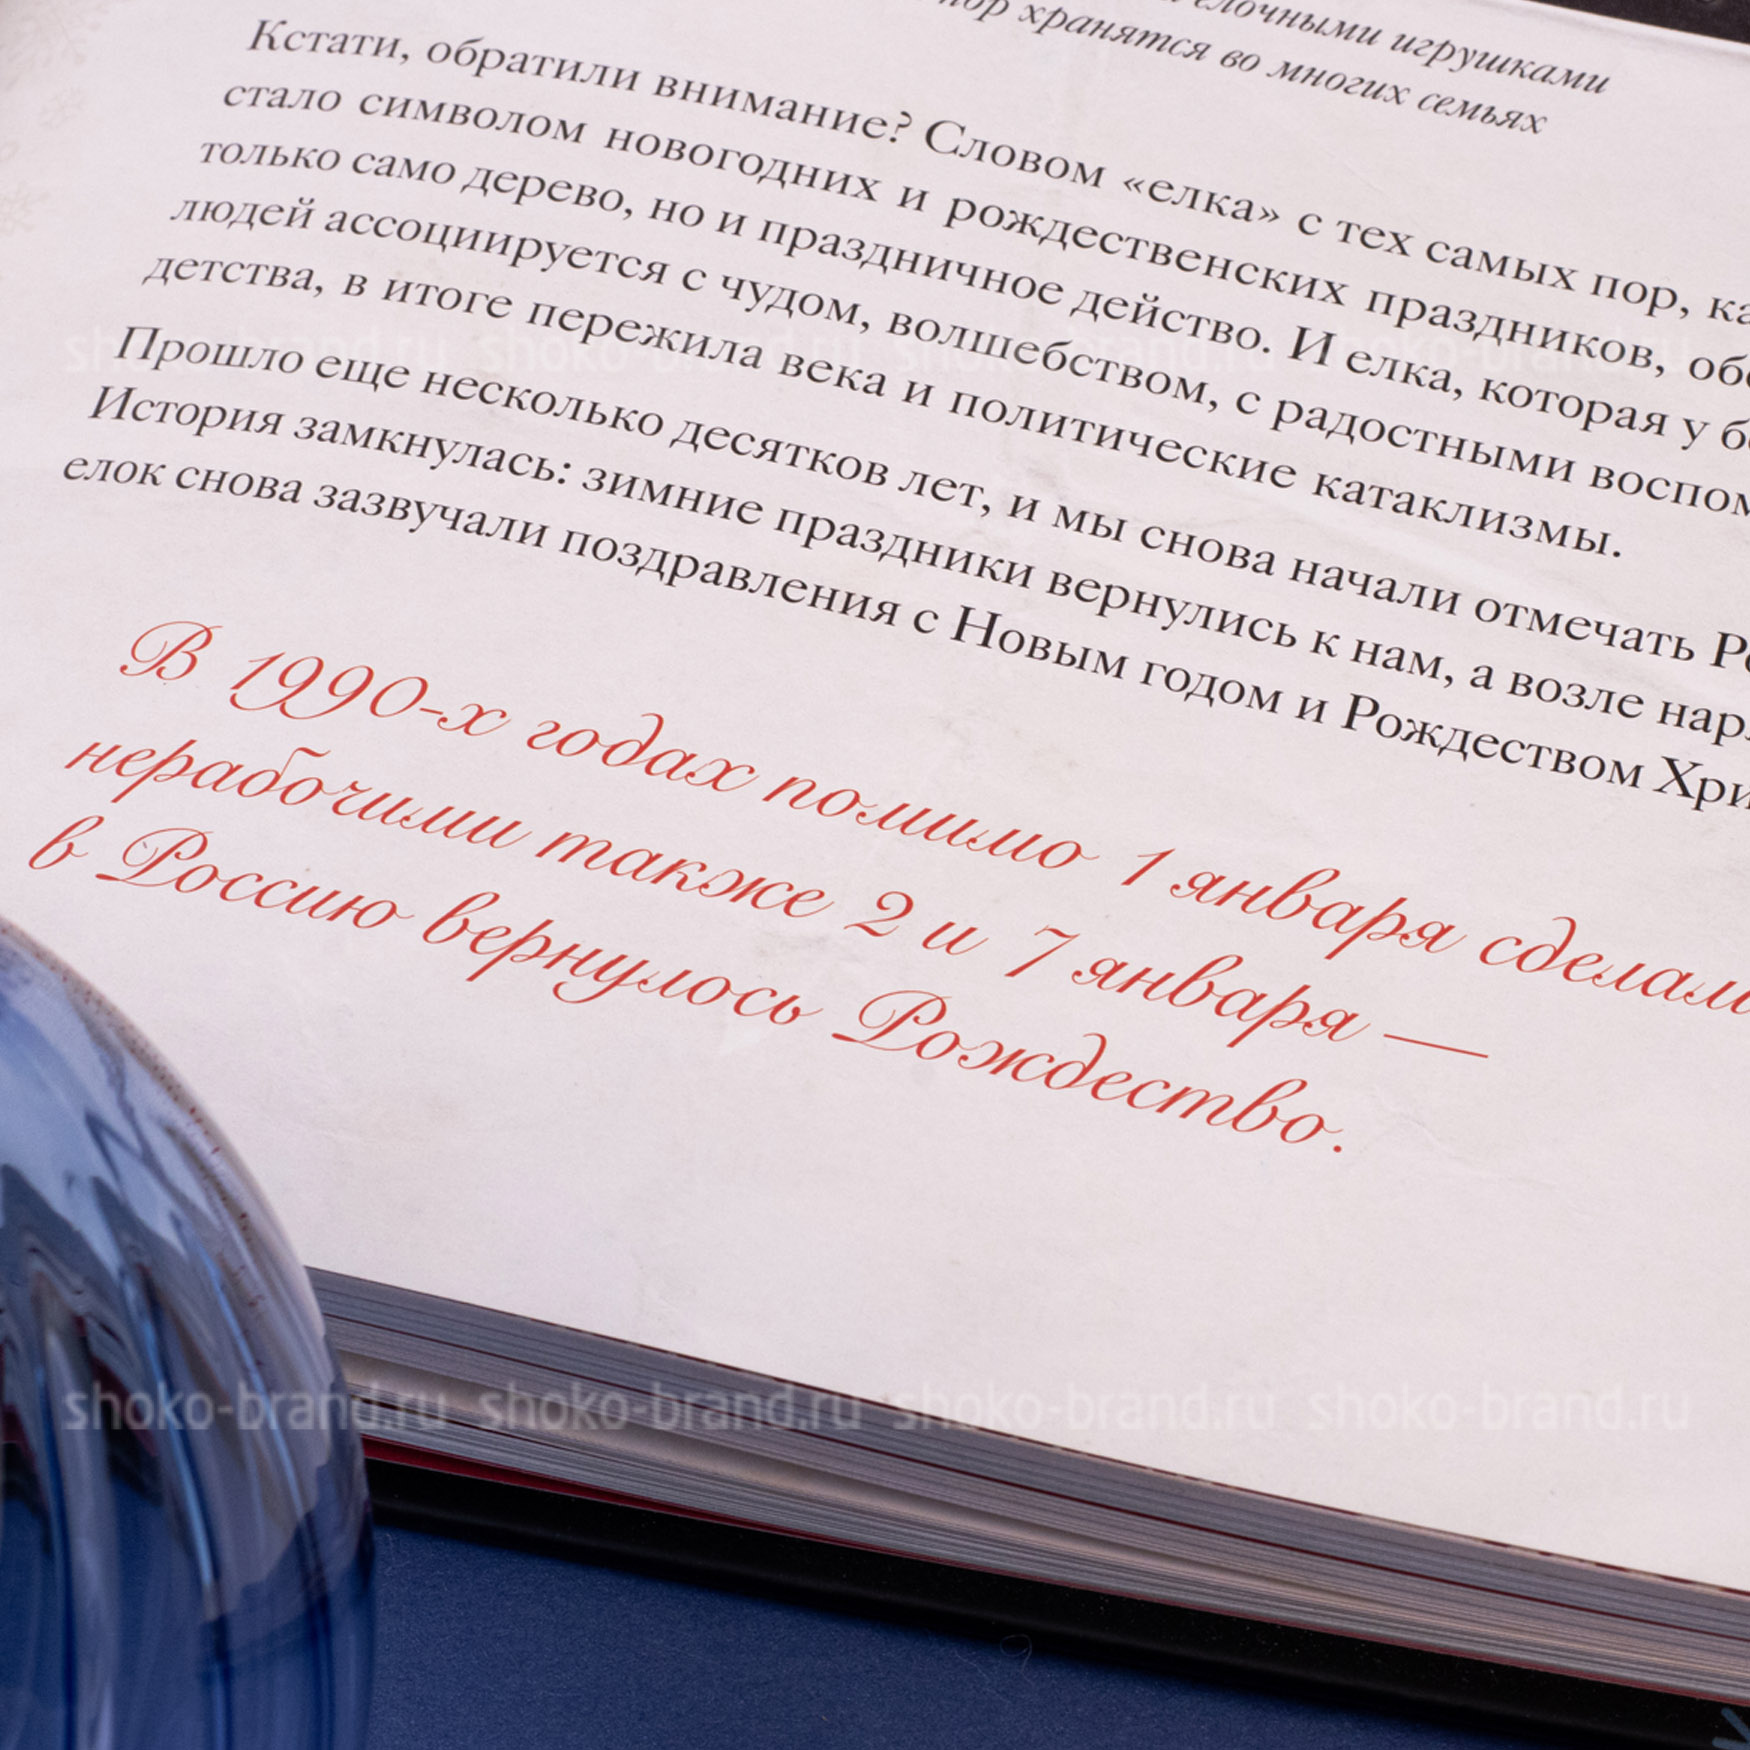 елочными игрушками
пор хранятся во многих семьях
Кстати, обратили внимание? Словом «елка» с тех самых пор, ка
стало символом новогодних и рождественских праздников, об
только само дерево, но и праздничное действо. И елка, которая у б
людей ассоциируется с чудом, волшебством, с радостными воспом
детства, в итоге пережила века и политические катаклизмы.
Прошло еще несколько десятков лет, и мы снова начали отмечать Р
История замкнулась: зимние праздники вернулись к нам, а возле нар
елок снова зазвучали поздравления с Новым годом и Рождеством Хри
В 1990-х годах помимо 1 января сделали
нерабочими также 2 и 7 января —
в Россию вернулось Рождество.
shoko-brand.ru shoko-brand.ru shoko-brand.ru shoko-brand.ru
shoko-brand.ru shoko-brand.ru shoko-brand.ru shoko-brand.ru